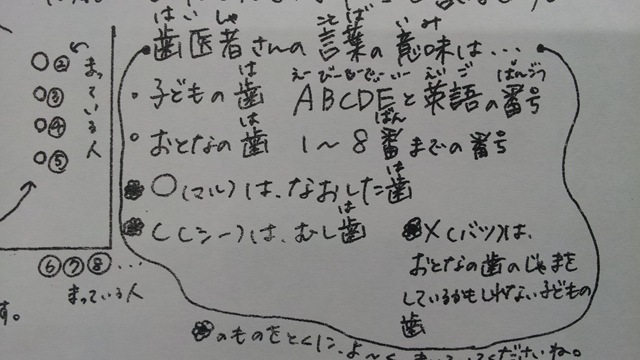 歯医者さんの言葉の意味は…
はいしゃ ことば いみ
・子どもの歯 ABCDEと英語の番号
は えーびーしーでぃーいー えいご ばんごう
・おとなの歯 1〜8番までの番号
は ばん
○(マル)は、なおした歯
は
C(シー)は、むし歯
は
X(バツ)は、
おとなの歯のじゃまを
しているかもしれない子どもの
歯
のものをとくに、よ〜く
くださいね。
○②
○③
○④
○⑤
まっている人
⑥⑦⑧…
まっている人
す。